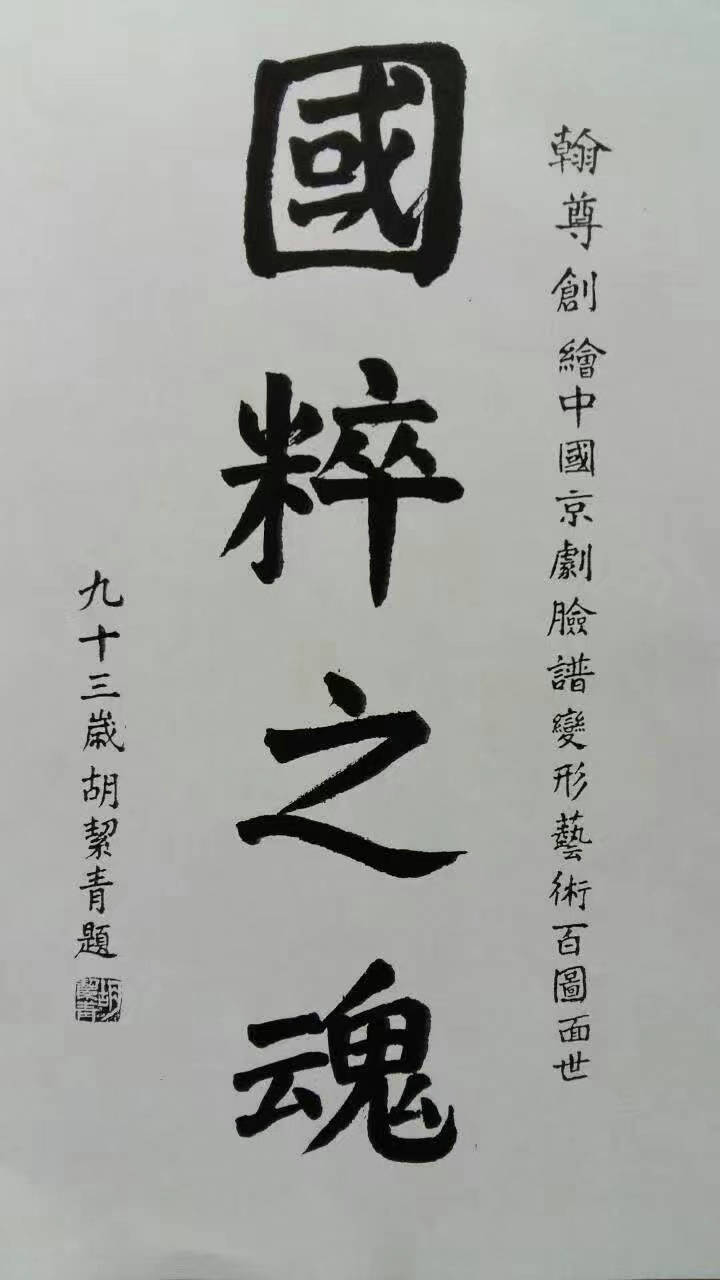 翰尊創繪中國京劇臉譜變形藝術百圖面世
國粹之魂
九十三歲胡絜青題
胡絜青